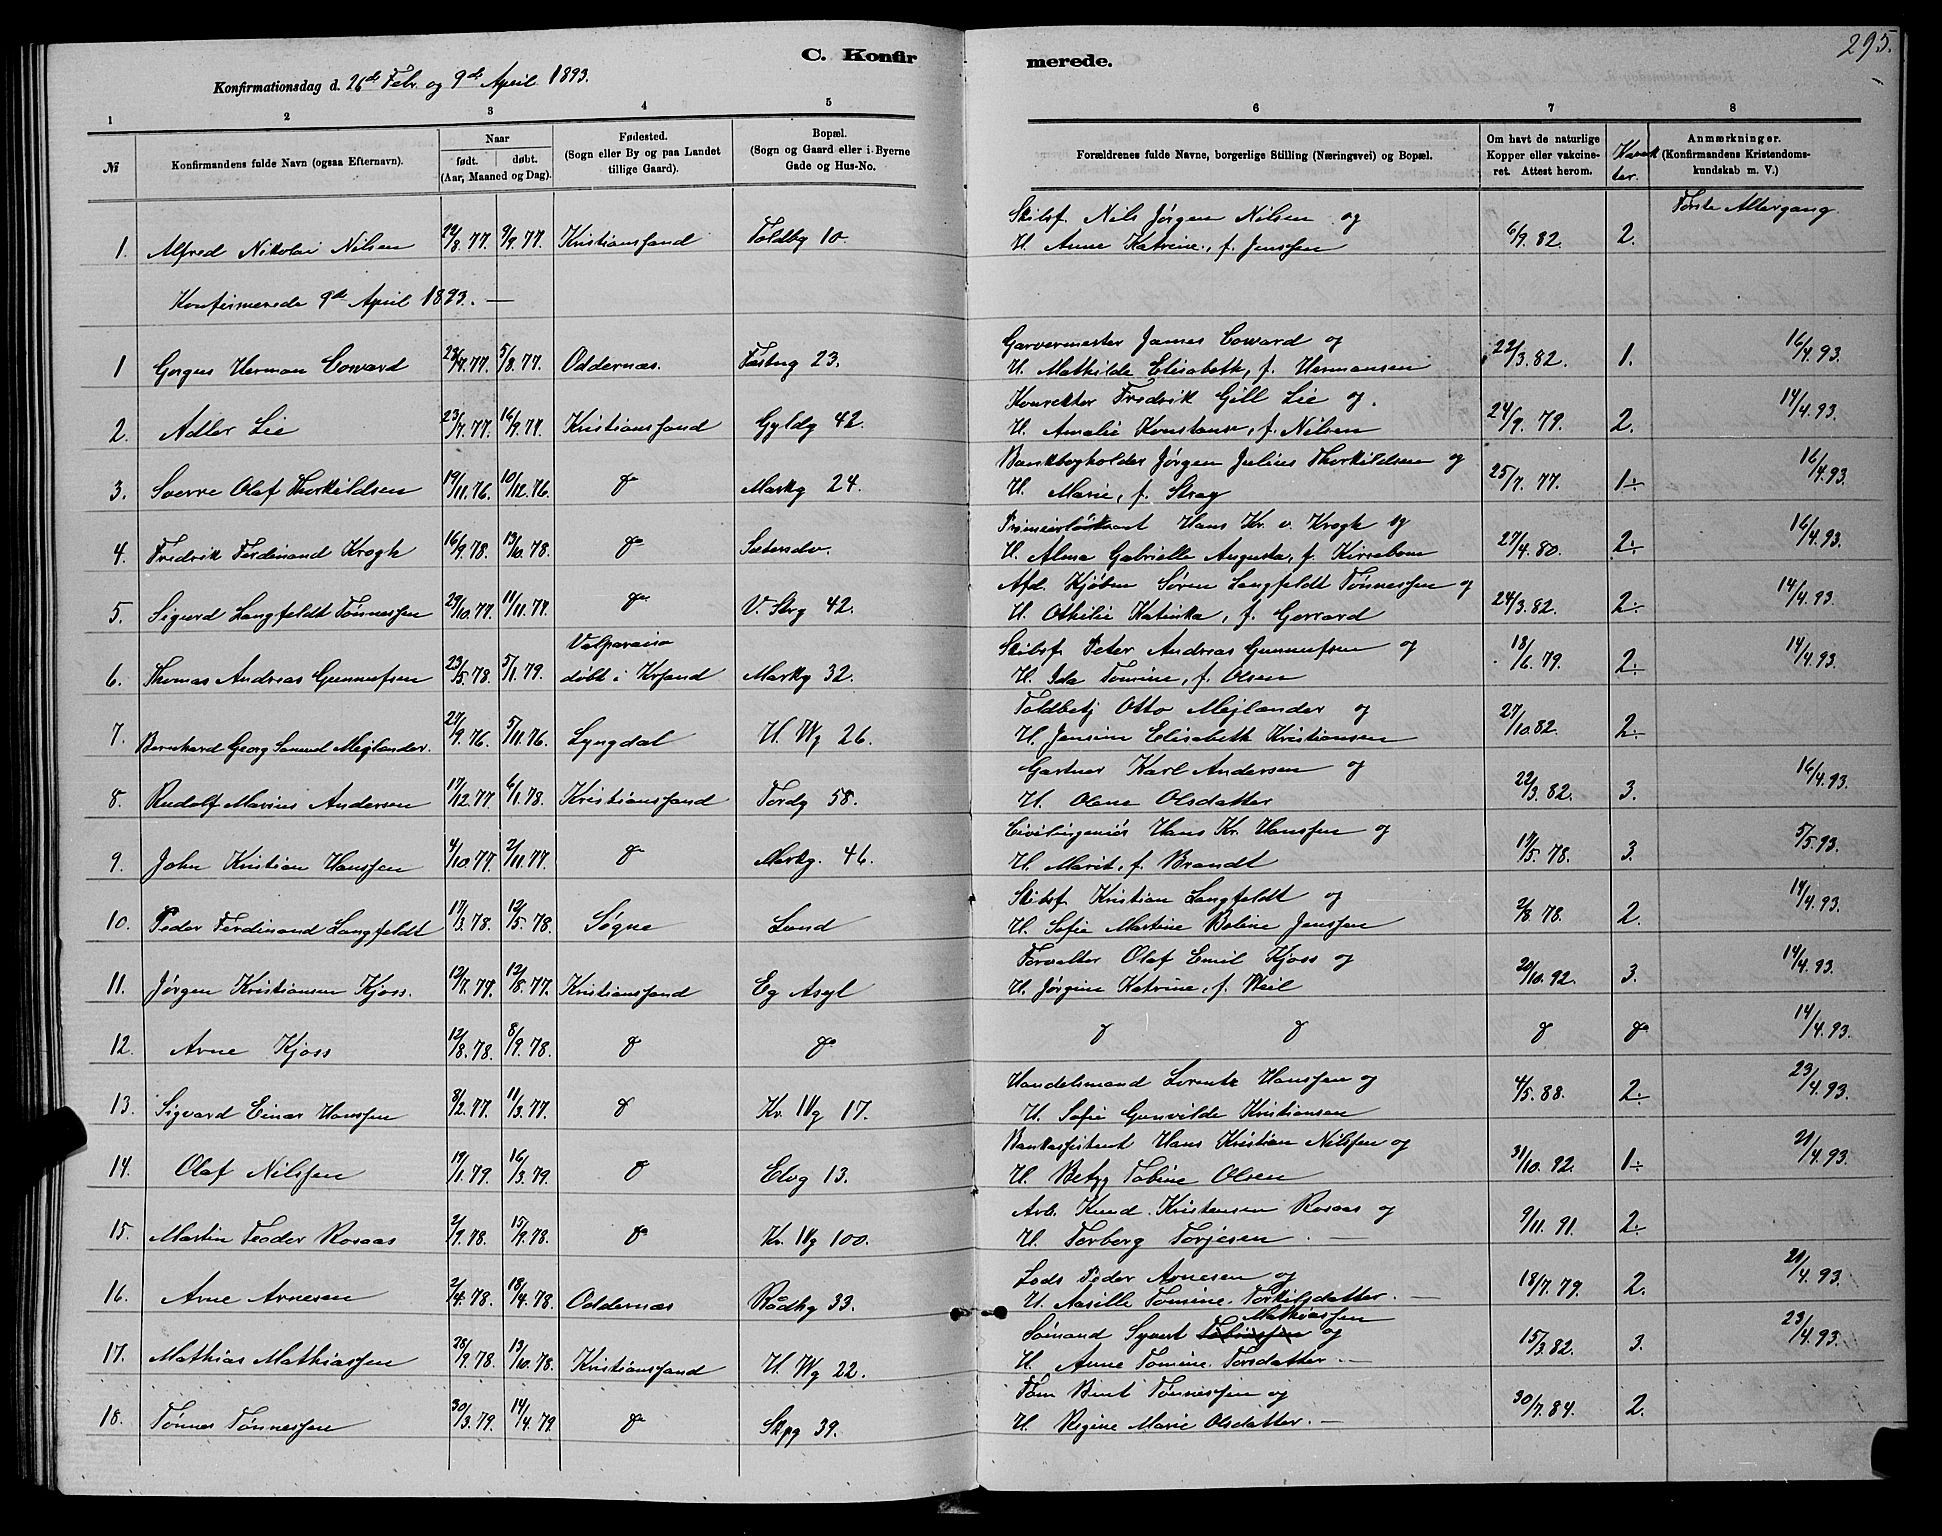 295.
C. Konfirmerede.
Konfirmationsdag d. 26de Febr. og 9de April 1893.
1 2 3 4 5 6 7 8
№ Konfirmandens fulde Navn (ogsaa Efternavn). Naar født. døbt. (Aar, Maaned og Dag). Fødested. (Sogn eller By og paa Landet tillige Gaard). Bopæl. (Sogn og Gaard eller i Byerne Gade og Hus-No. Forældrenes fulde Navne, borgerlige Stilling (Næringsvei) og Bopæl. Om havt de naturlige Kopper eller vakcineret. Attest herom. Karakter. Anmærkninger. (Konfirmandens Kristendomskundskab m. V.)
Første Altergang
Skibsf. Nils Jørgen Nilsen og
1. Alfred Nikolai Nilsen 29/8.77. 9/9.77. Kristianssand Toldbg 10. H. Anne Katrine, f. Jenssen 6/9.82. 2.
Konfirmerede 9de April 1893. —
Garvermester James Coward og
1 Gorgus Herman Coward 23/7.77. 5/8.77. Oddernæs. Fæstng 23. H. Mathilde Elisabeth, f. Hermansen 22/3.82. 1. 16/4.93.
Konrektor Fredrik Gill Lie og.
2. Adler Lie 23/7.77. 16/9.77. Kristianssand Gyldg 42. H. Amalie Konstanse, f. Nilsen 24/9.79. 2. 14/4.93.
Bankbogholder Jørgen Julius Thorkildsen og
3. Sverre Olaf Thorkildsen 19/11.76. 10/12.76. do Markg 24. H. Marie, f. Stray 25/7.77. 1÷ 16/4.93.
Premierløitnant Hans Kr. v. Krogh og
4. Fredrik Ferdinand Krogh 16/9.78. 13/10.78. do Sætersdv. H. Alma Gabrielle Augusta, f. Kirsebom 27/4.80. 2÷ 16/4.93.
Afd. Kjøbm Søren Langfeldt Tønnessen og
5. Sigurd Langfeldt Tønnessen 29/10.77. 11/11.77. do V. Strg 42. H. Othilie Katinka, f. Gerrard 24/3.82. 2÷ 14/4.93.
Skibsf. Peter Andreas Gunnufsen og
6. Thomas Andreas Gunnufsen 23/5.78. 5/1.79. Valparaiso døbt i Krsand Markg 32. H. Ida Tomine, f. Olsen 18/6.79. 2÷ 14/4.93.
Toldbetj Otto Mejlænder og
7. Bernhard Georg Samuel Mejlænder. 27/9.76. 5/11.76. Lyngdal H. Wg 26. H. Jensine Elisabeth Kristiansen 27/10.82. 2÷
Gartner Karl Andersen og
8. Rudolf Marius Andersen 17/12.77. 6/1.78. Kristianssand Tordg 58. H. Olene Olsdatter 22/3.82. 3. 16/4.93.
Civilingeniør Hans Kr. Hanssen og
9. John Kristian Hanssen 4/10.77. 2/11.77. do Markg. 46. H. Marit, f. Brandt 17/5.78. 3. 5/5.93.
Skibsf Kristian Langfeldt og
10. Peder Ferdinand Langfeldt 17/3.78. 12/5.78. Søgne Lund H. Sofie Martine Boline Jenssen 2/8.78. 2. 14/4.93.
Forvalter Olaf Emil Kjoss og
11. Jørgen Kristiansen Kjoss. 12/7.77. 12/8.77. Kristianssand Eg Asyl H. Jørgine Katrine, f. Weil 20/10.92. 3. 14/4.93.
12. Arne Kjoss 12/8.78. 8/9.78. do do do do do do 14/4.93.
Handelsmand Lorentz Hanssen og
13. Sigvard Einar Hanssen 8/2.77. 11/3.77. do Kr. IVg 17. H. Sofie Gunvilde Kristiansen 4/5.88. 2÷ 23/4.93.
Bankassistent Hans Kristian Nilssen og
14. Olaf Nilssen 19/1.79. 16/3.79. do Elvg 13. H. Betzy Tobine Olsen 31/10.92. 1÷ 21/4.93.
Arb. Knud Kristensen Rosaas og
15. Martin Teodor Rosaas 2/9.78. 15/9.78. do Kr. IVg 100. H. Torborg Torjesen. — 9/11.91. 2.
Lods Peder Arnesen og
16. Arne Arnesen 2/4.78. 18/4.78. Oddernæs Rådhg 33. H. Aasille Tomine Torkilsdatter. — 18/7.79. 2. 21/4.93.
Sømand Syvert Mathiassen og
17. Mathias Mathiassen 28/9.78. 13/10.78. Kristianssand H. Wg 22. H. Anne Tomine Torsdatter. — 15/3.82. 3. 23/4.93.
Tøm Bent Tønnessen og
18. Tønnes Tønnessen 30/3.79. 14/4.79. do Skpg 39. H. Regine Marie Olsdatter. — 30/7.84. 2.